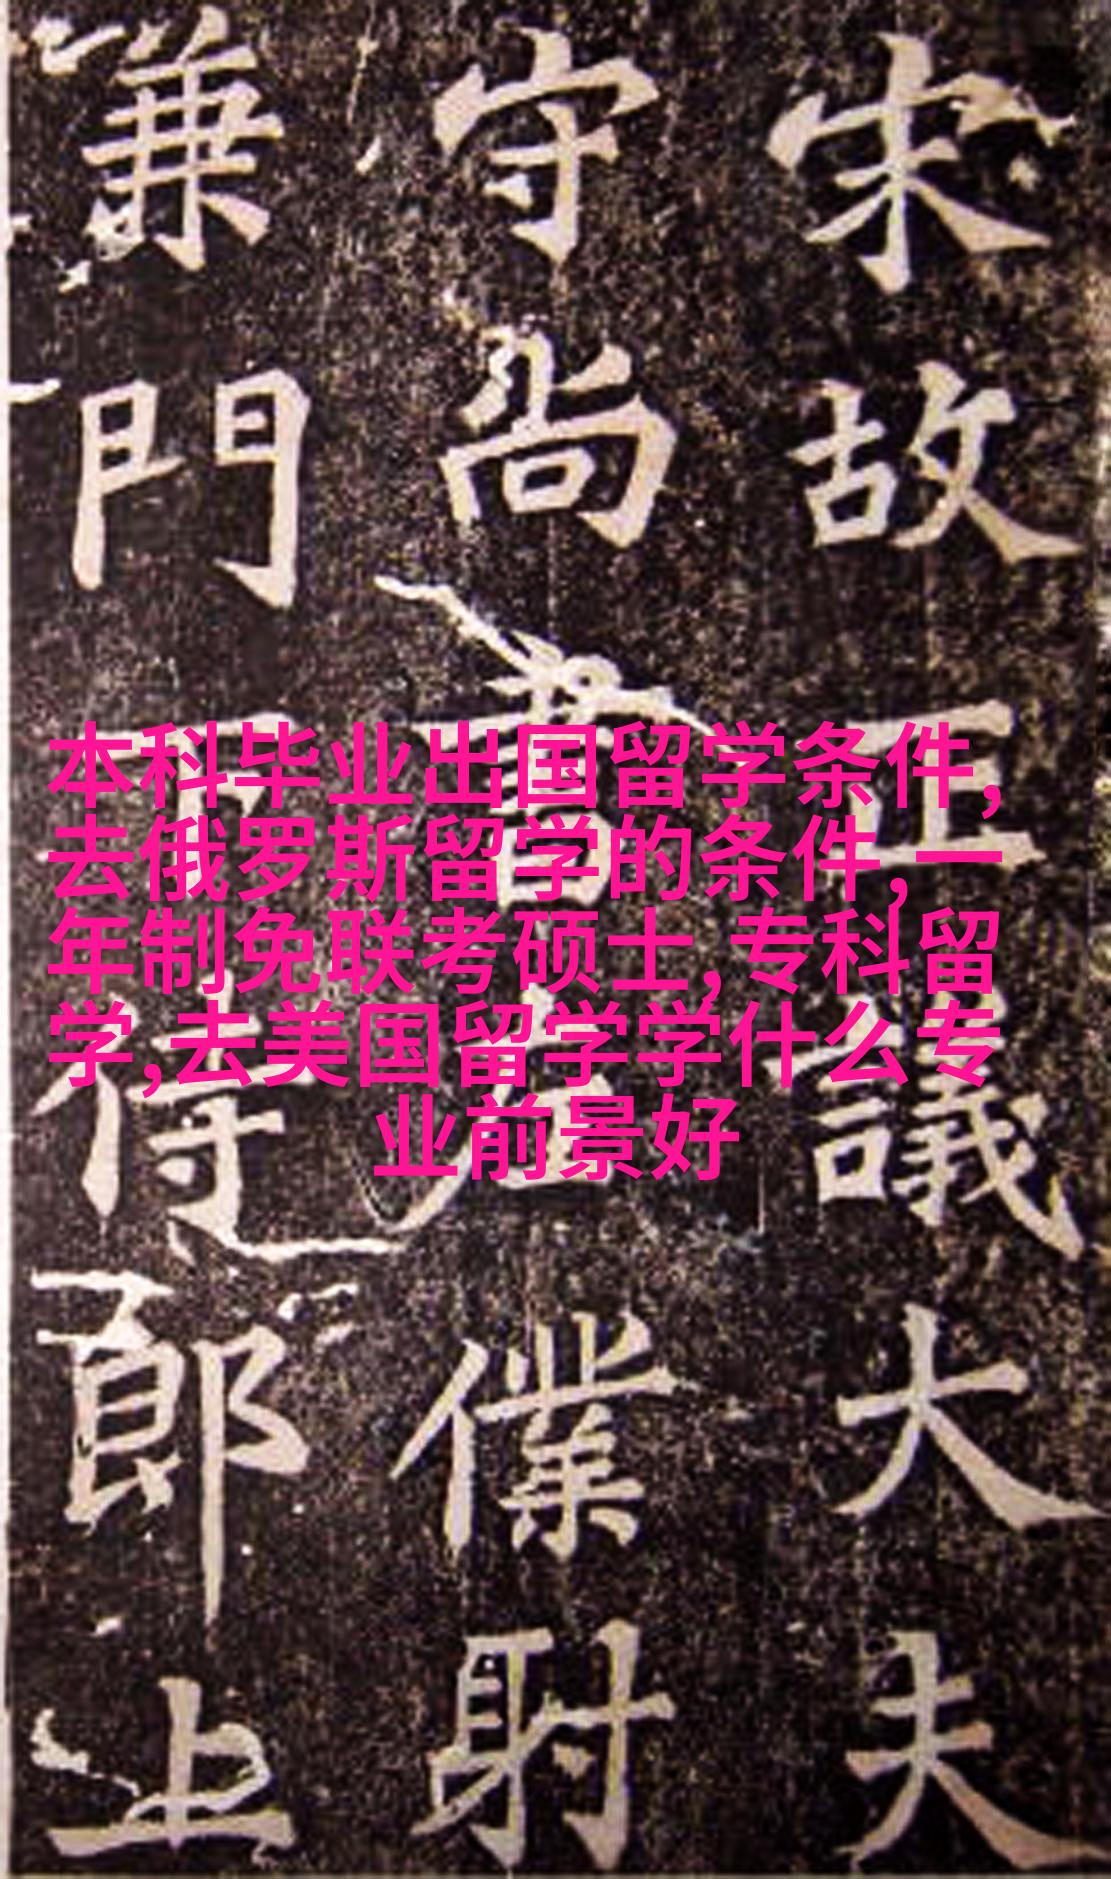 宋故正議大夫
守尚書左僕射
兼門下侍郎上
本科毕业出国留学条件,
去俄罗斯留学的条件,一
年制免联考硕士,专科留
学,去美国留学学什么专
业前景好